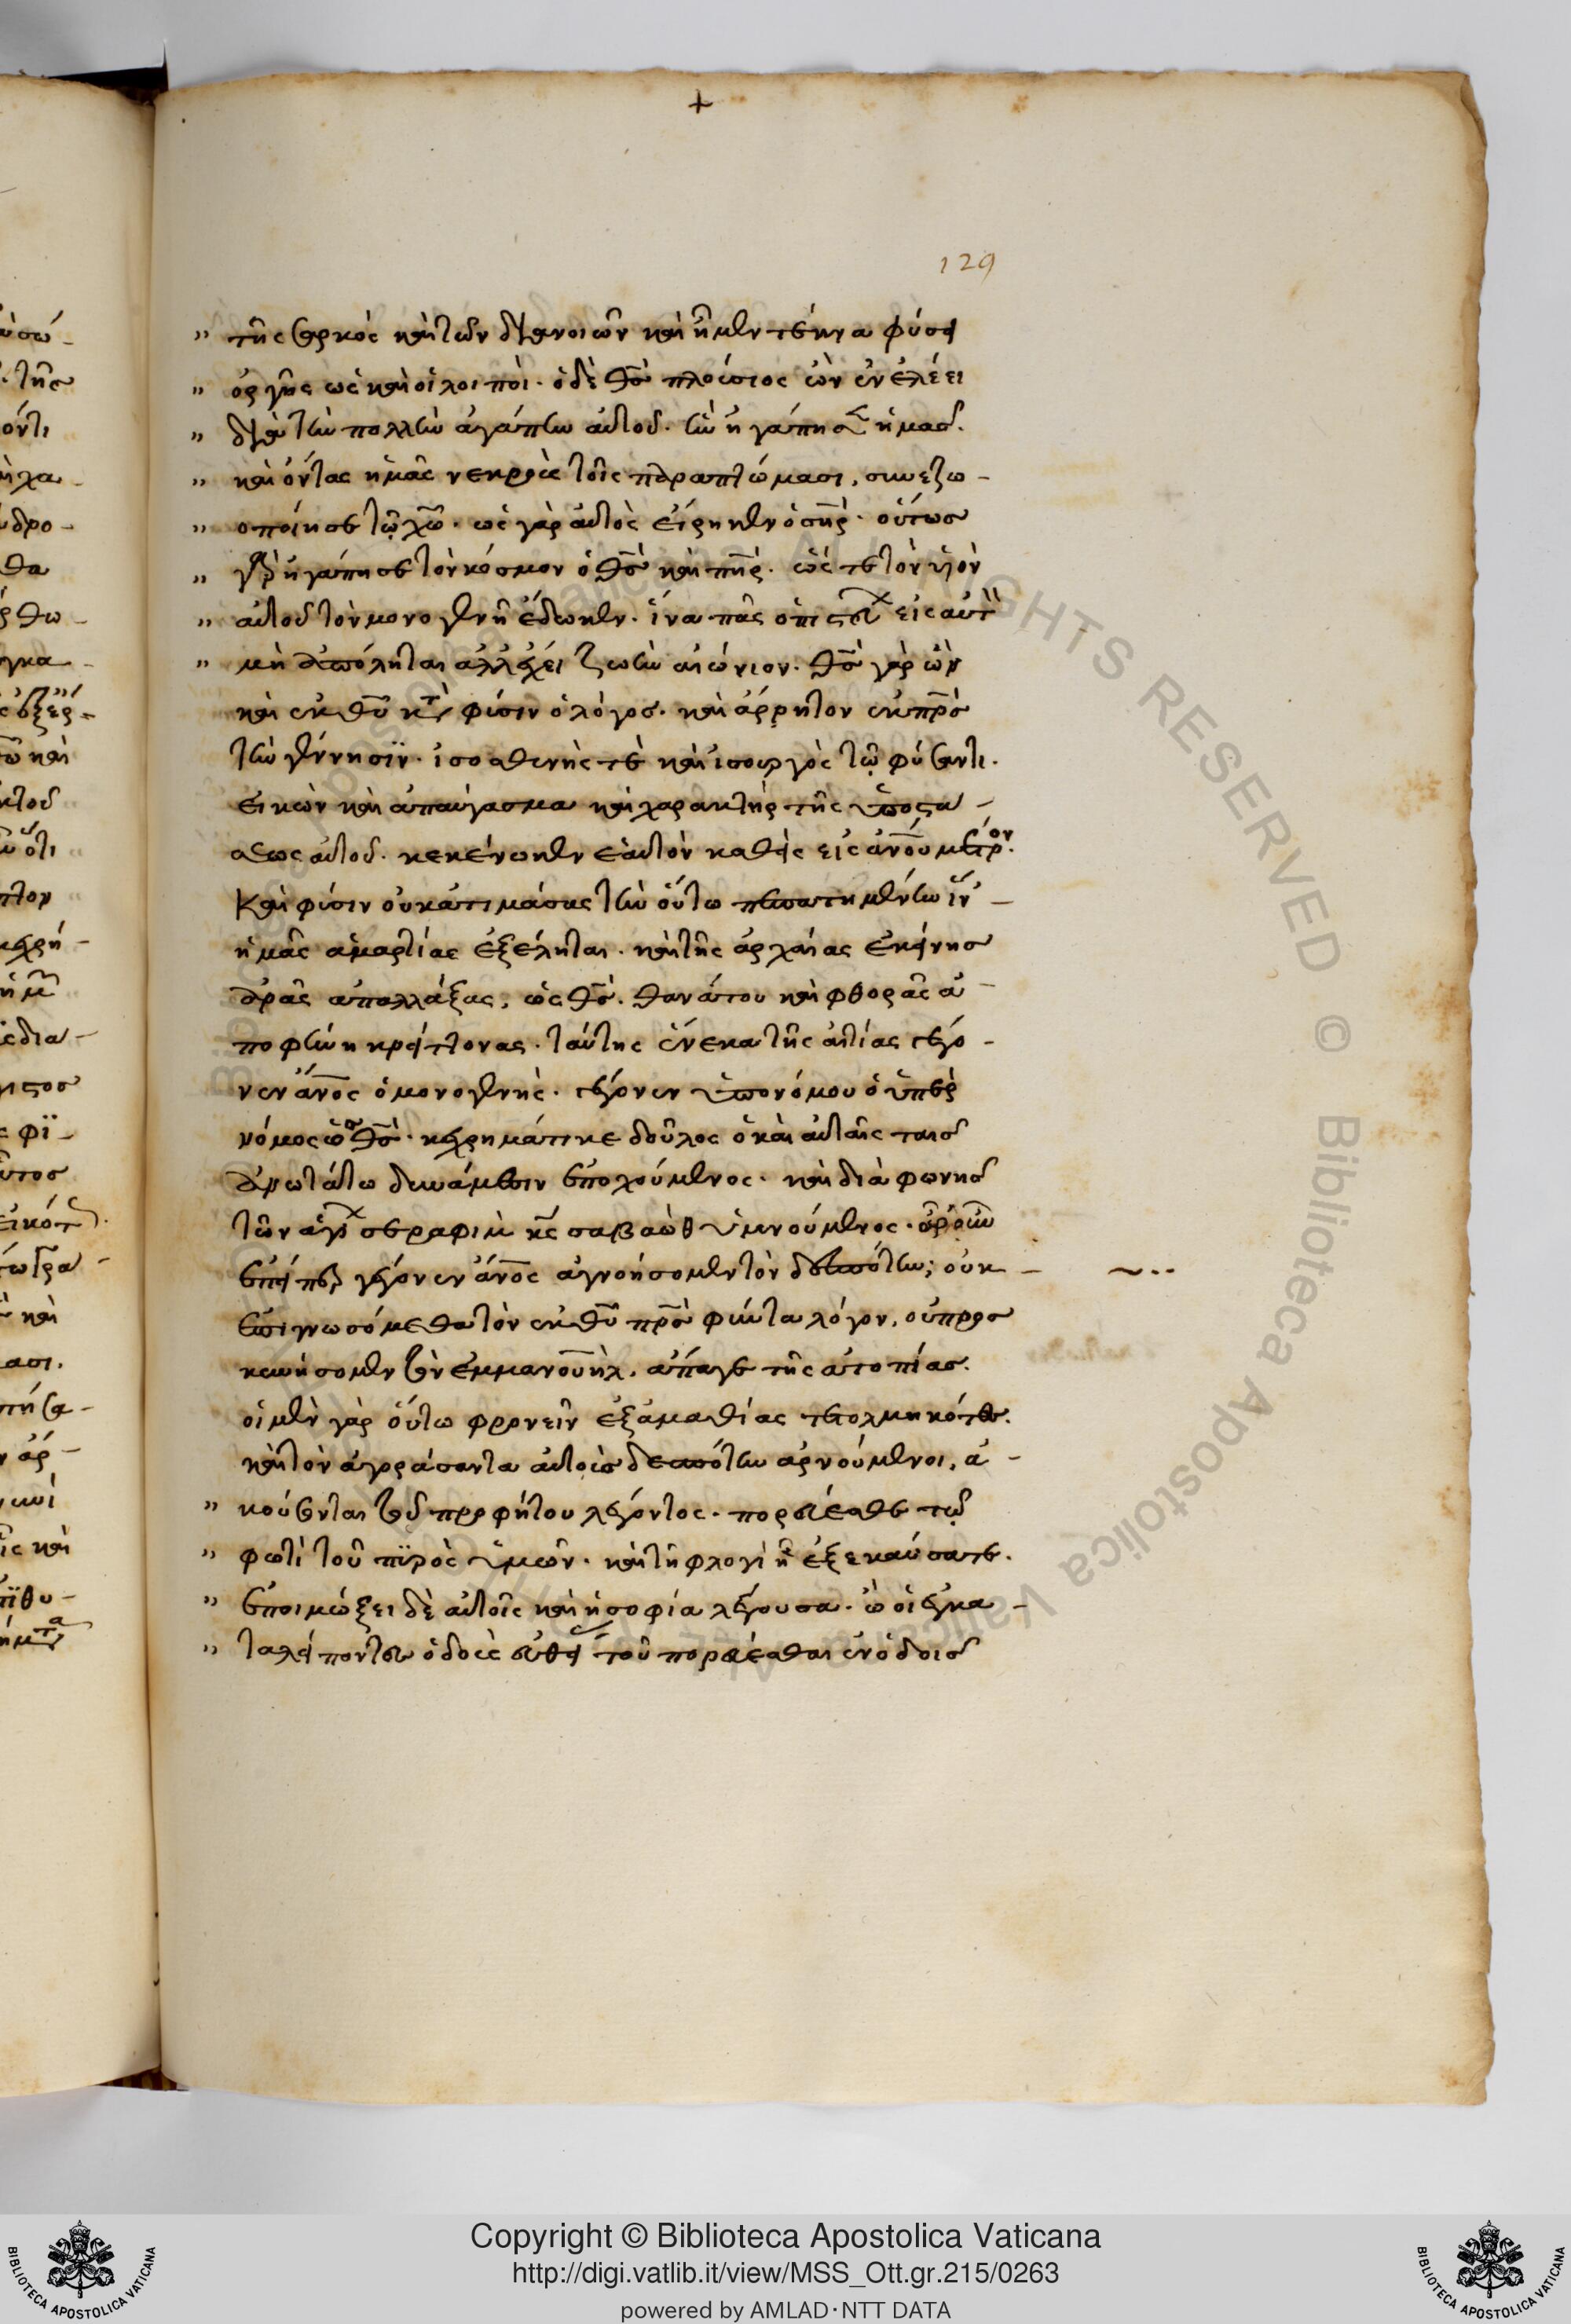 +
129
" τῆς σαρκὸς καὶ τῶν διανοιῶν καὶ ἦμεν τέκνα φύσει
" ὀργῆς ὡς καὶ οἱ λοιποί· ὁ δὲ θσ πλούσιος ὢν ἐν ἐλέει
" διὰ τὴν πολλὴν ἀγάπην αὐτοῦ· ἣν ἠγάπησεν ἡμᾶς·
" καὶ ὄντας ἡμᾶς νεκροὺς τοῖς παραπτώμασι, συνεζω-
" οποίησε τῷ χω· ὡς γὰρ αὐτὸς εἴρηκεν ὁ σηρ· οὕτως
" γὰρ ἠγάπησε τὸν κόσμον ὁ θσ καὶ πηρ· ὥς τε τὸν υἱὸν
" αὐτοῦ τὸν μονογενῆ ἔδωκεν· ἵνα πᾶς ὁ πιστεύων εἰς αὐτὸν
" μὴ ἀπόληται ἀλλ' ἔχει ζωὴν αἰώνιον· θσ γὰρ ὢν
καὶ ἐκ θυ κατὰ φύσιν ὁ λόγος· καὶ ἄρρητον ἐκ πρσ
τὴν γέννησιν· ἰσοσθενής τε καὶ ἰσουργὸς τῷ φύσαντι·
εἰκὼν καὶ ἀπαύγασμα καὶ χαρακτὴρ τῆς ὑποστά-
σεως αὐτοῦ· κεκένωκεν ἑαυτὸν καθεὶς εἰς ανου μέτριον·
Καὶ φύσιν οὐκ ἀτιμάσας τὴν οὕτω πεπατημένην ἵν'
ἡμᾶς ἁμαρτίας ἐξέληται· καὶ τῆς ἀρχαίας ἐκείνης
ἀρᾶς ἀπαλλάξας, ὡς θσ· θανάτου καὶ φθορᾶς ἀ-
ποφήνῃ κρείττονας· ταύτης ἕνεκα τῆς αἰτίας γέγο-
νεν ανος ὁ μονογενής· γέγονεν ὑπὸ νόμον ὁ ὑπὲρ
νόμος ὡς θσ· κεχρημάτικε δοῦλος ὁ καὶ αὐταῖς ταῖς
ἀνωτάτω δυνάμεσιν ἐποχούμενος· καὶ διὰ φωνῆς
τῶν ἁγίων σεραφὶμ κς σαβαὼθ ὑμνούμενος· ἆρ' οὖν
ἐπείπερ γέγονεν ανος ἀγνοήσομεν τὸν δεσπότην; οὐκ
ἐπιγνωσόμεθα τὸν ἐκ θυ πρσ φύντα λόγον, οὐ προς
κυνήσομεν τὸν ἐμμανουὴλ, ἄπαγε τῆς ἀτοπίας·
οἱ μὲν γὰρ οὕτω φρονεῖν ἐξ ἀμαθίας τετολμηκότες·
καὶ τὸν ἀγοράσαντα αὐτοὺς δεσπότην ἀρνούμενοι, ἀ-
" κούσονται τοῦ προφήτου λέγοντος· πορεύεσθε τῷ
" φωτὶ τοῦ πυρὸς ὑμῶν· καὶ τῇ φλογὶ ᾗ ἐξεκαύσατε·
" ἐποιμώξει δὲ αὐτοῖς καὶ ἡ σοφία λέγουσα· ὦ οἱ ἐγκα-
" ταλείποντες ὁδοὺς εὐθείας τοῦ πορεύεσθαι ἐν ὁδοῖς
Copyright © Biblioteca Apostolica Vaticana
http://digi.vatlib.it/view/MSS_Ott.gr.215/0263
powered by AMLAD·NTT DATA
BIBLIOTECA APOSTOLICA VATICANA
BIBLIOTECA APOSTOLICA VATICANA